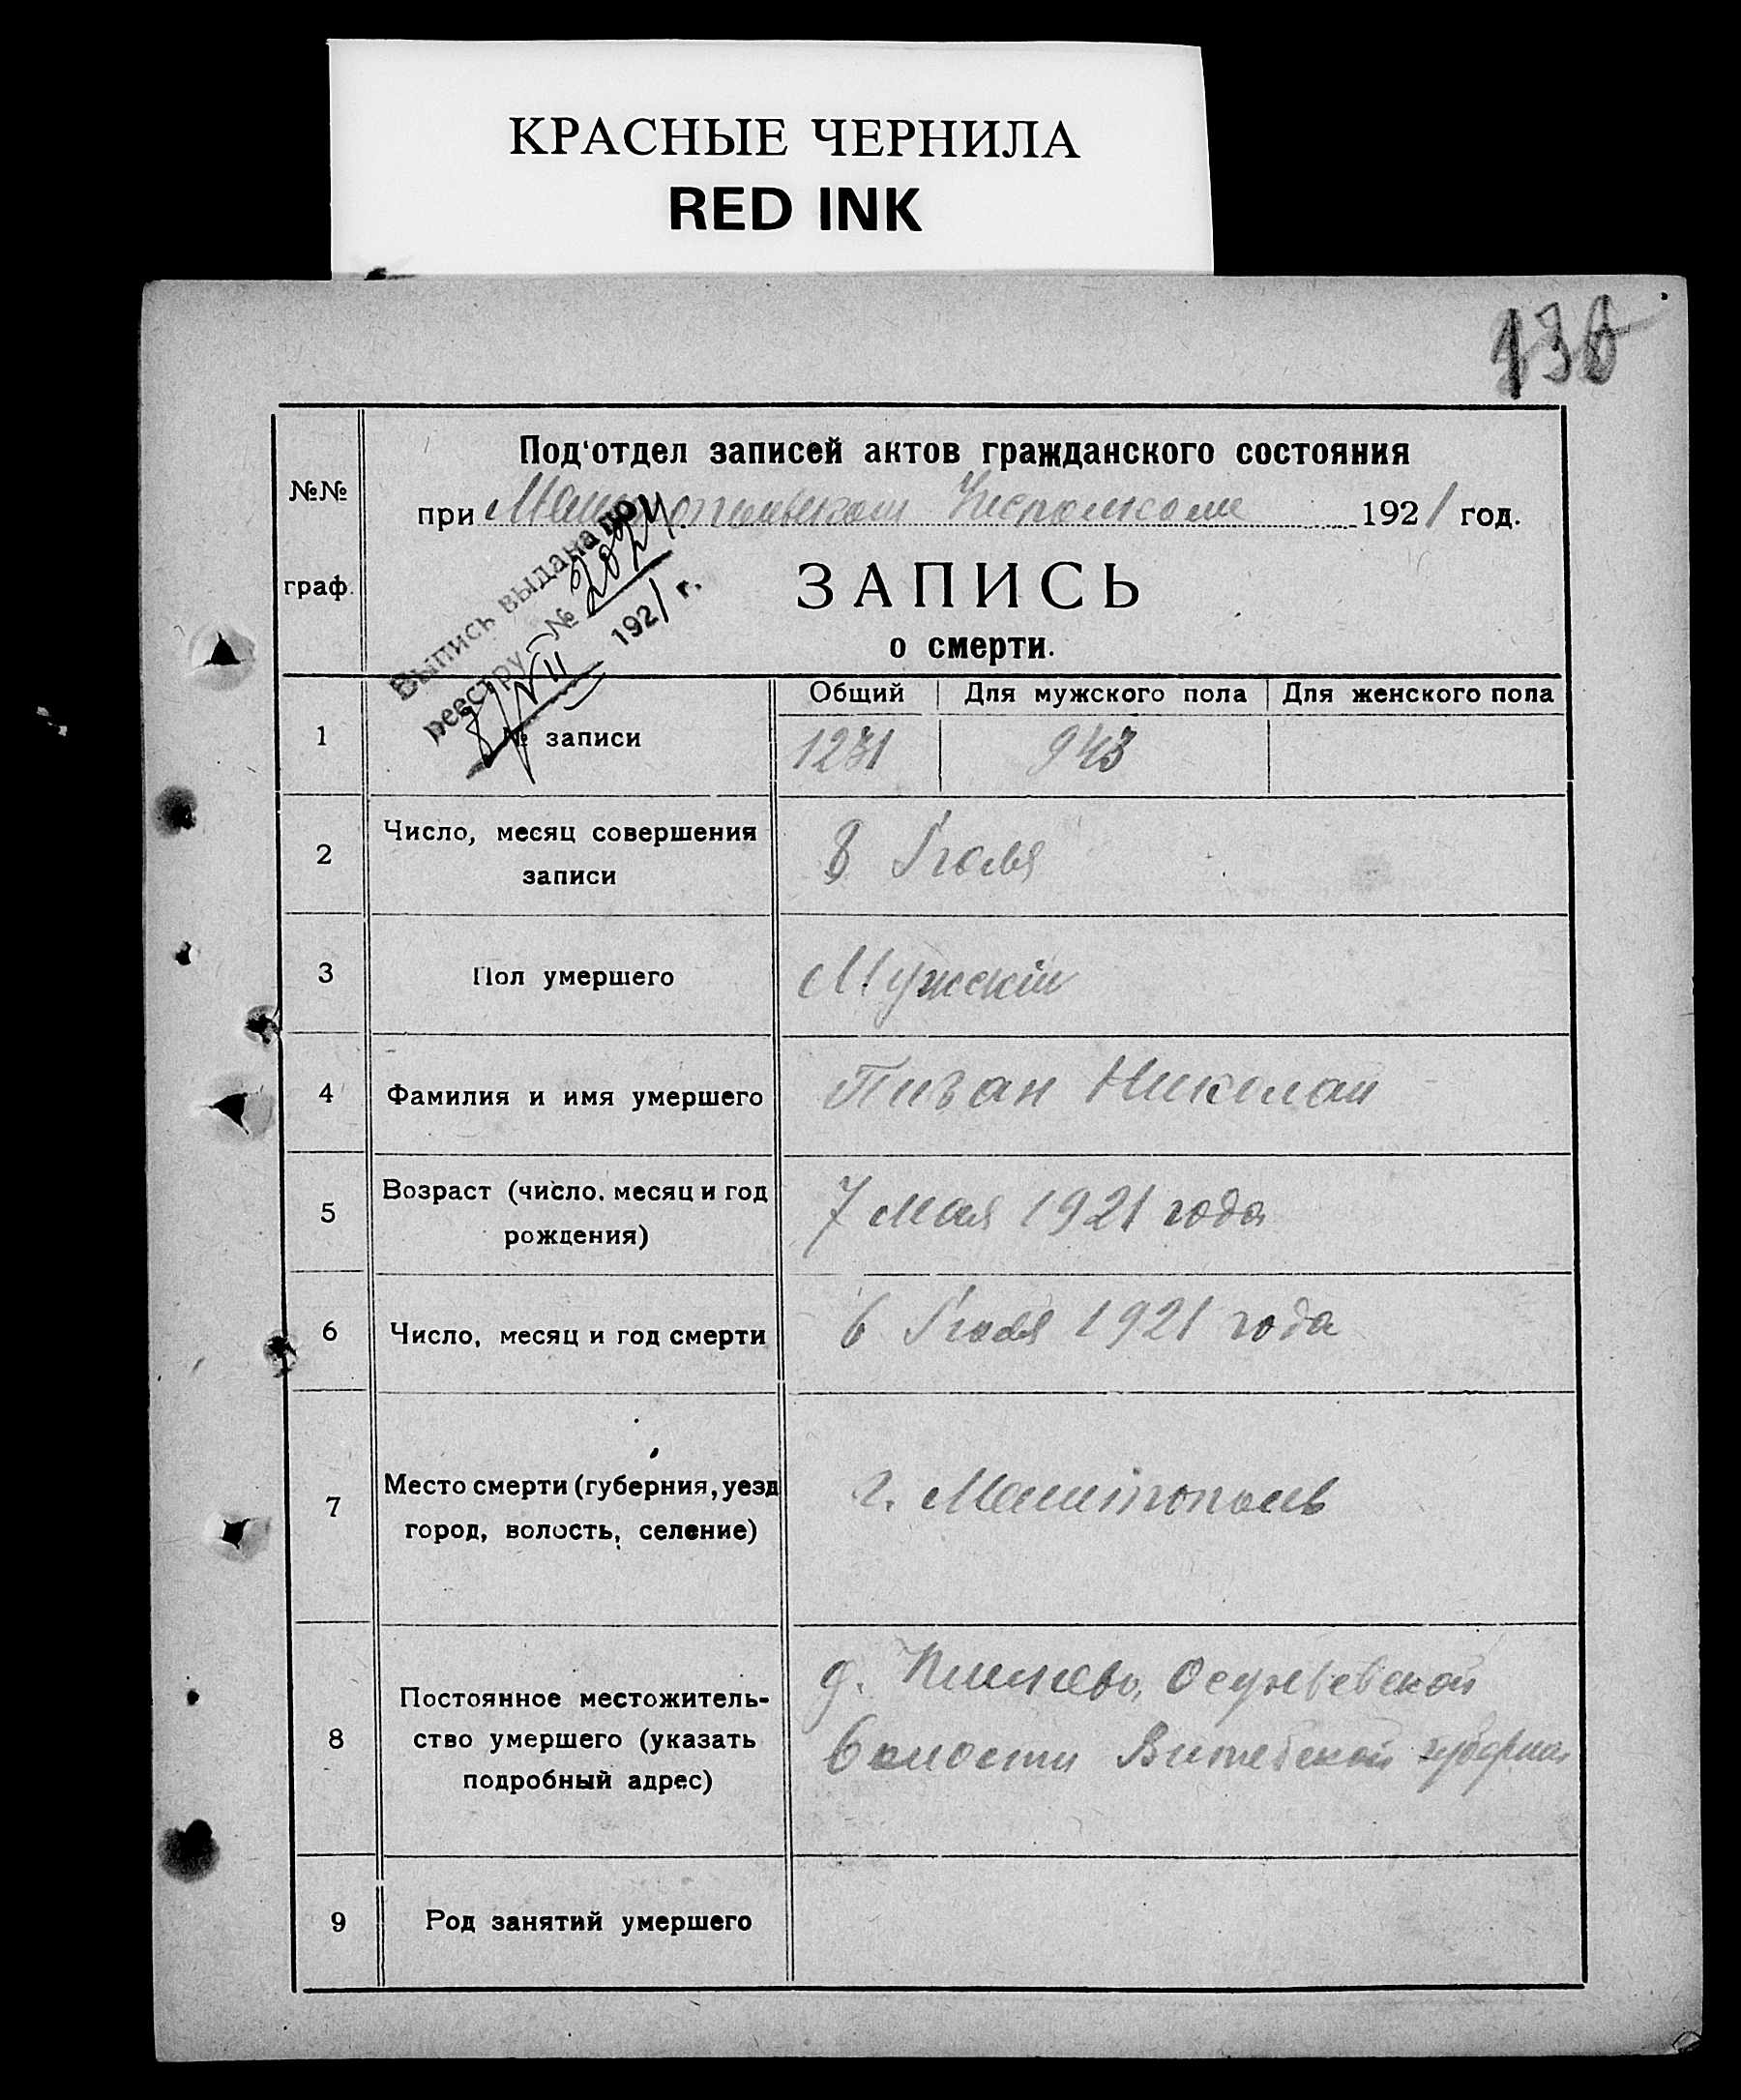 КРАСНЫЕ ЧЕРНИЛА
RED INK
130
№№ граф.
Под'отдел записей актов гражданского состояния
при Мелитопольском Исполкоме 1921 год.
ЗАПИСЬ
о смерти.
Выпись выдана по
реестру № 2824
8/VII 1921 г.
Общий Для мужского пола Для женского пола
1 № записи 1231 943
2 Число, месяц совершения
записи 8 Июля
3 Пол умершего Мужскій
4 Фамилия и имя умершего Пиган Николай
5 Возраст (число. месяц и год
рождения) 7 мая 1921 года
6 Число, месяц и год смерти 6 Июля 1921 года
7 Место смерти (губерния, уезд
город, волость, селение) г. Мелитополь
8 Постоянное местожитель-
ство умершего (указать
подробный адрес) д.
волости Витебской губернии
9 Род занятий умершего